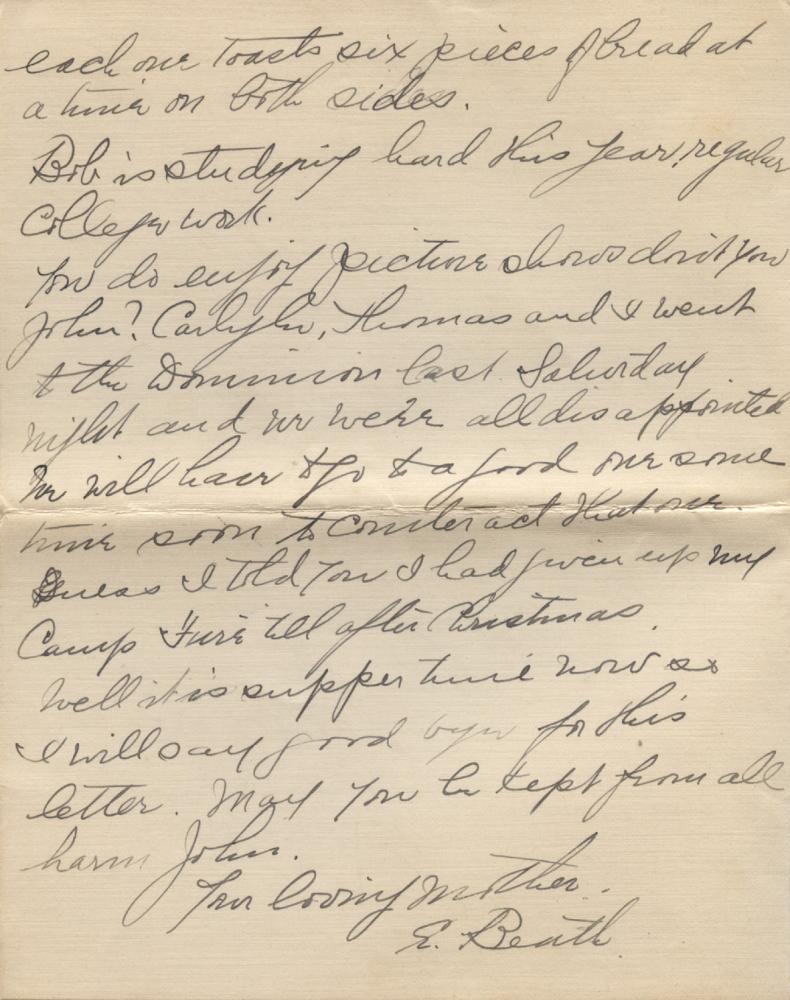 each one toasts six pieces of bread at
a time on both sides.
Bob is studying hard this year, regular
College work.
You do enjoy picture shows don't you
John? Carlyle, Thomas and I went
to the Dominion last Saturday
night and we were all disappointed
We will have to go to a good one some
time soon to counteract that one.
Guess I told you I had given up my
Camp Fire till after Christmas.
Well it is supper time now so
I will say good bye for this
letter. May you be kept from all
harm John.
Your loving Mother.
E. Beath